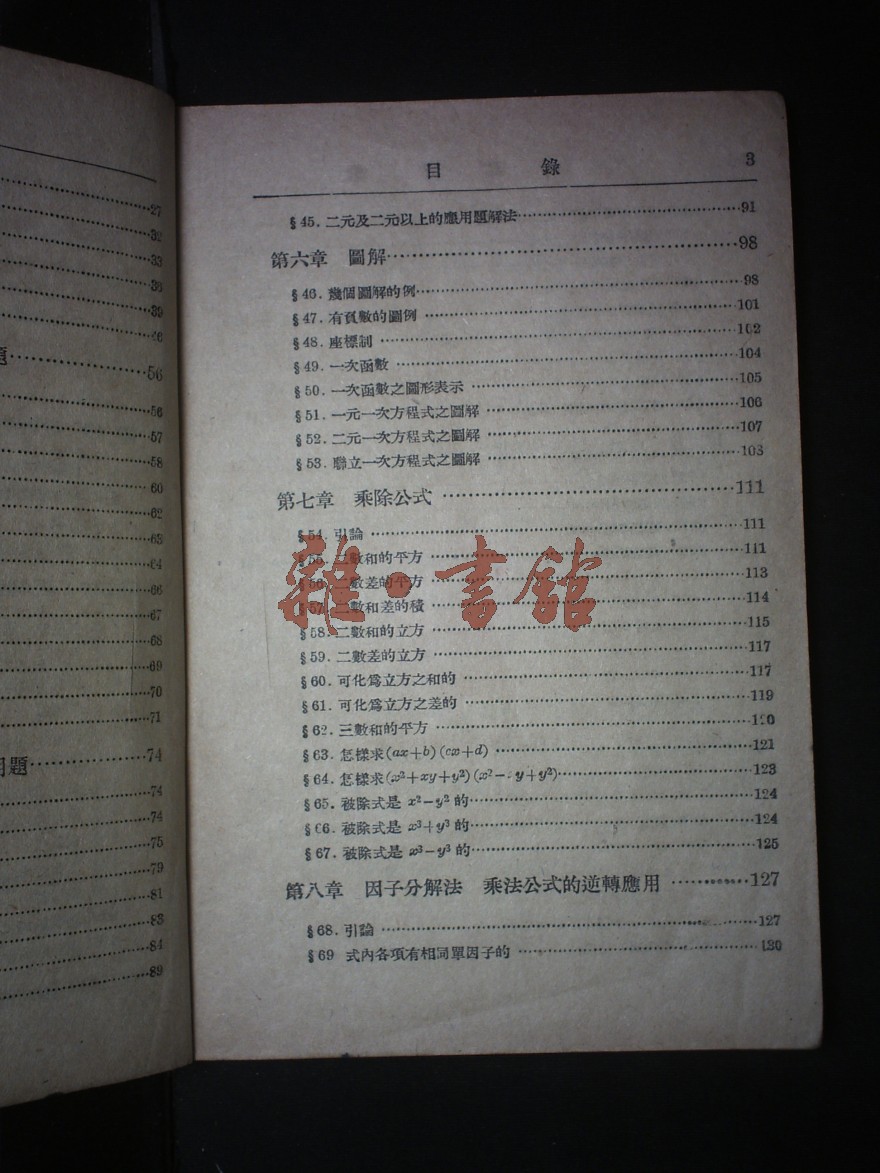 27
32
33
36
39
46
題 56
56
57
58
60
62
63
64
66
67
68
69
70
71
用題 74
74
74
75
79
81
83
84
89
目 錄 3
§45. 二元及二元以上的應用題解法 91
第六章 圖解 98
§46. 幾個圖解的例 98
§47. 有負數的圖例 101
§48. 座標制 102
§49. 一次函數 104
§50. 一次函數之圖形表示 105
§51. 一元一次方程式之圖解 106
§52. 二元一次方程式之圖解 107
§53. 聯立一次方程式之圖解 108
第七章 乘除公式 111
§54. 引論 111
§55. 二數和的平方 111
§56. 二數差的平方 113
§57. 二數和差的積 114
§58. 二數和的立方 115
§59. 二數差的立方 117
§60. 可化爲立方之和的 117
§61. 可化爲立方之差的 119
§62. 三數和的平方 120
§63. 怎樣求(ax+b)(cx+d) 121
§64. 怎樣求(x²+xy+y²)(x²- y+y²) 123
§65. 被除式是 x²-y² 的 124
§66. 被除式是 x³+y³ 的 124
§67. 被除式是 x³-y³ 的 125
第八章 因子分解法 乘法公式的逆轉應用 127
§68. 引論 127
§69 式內各項有相同單因子的 130
雜·書館